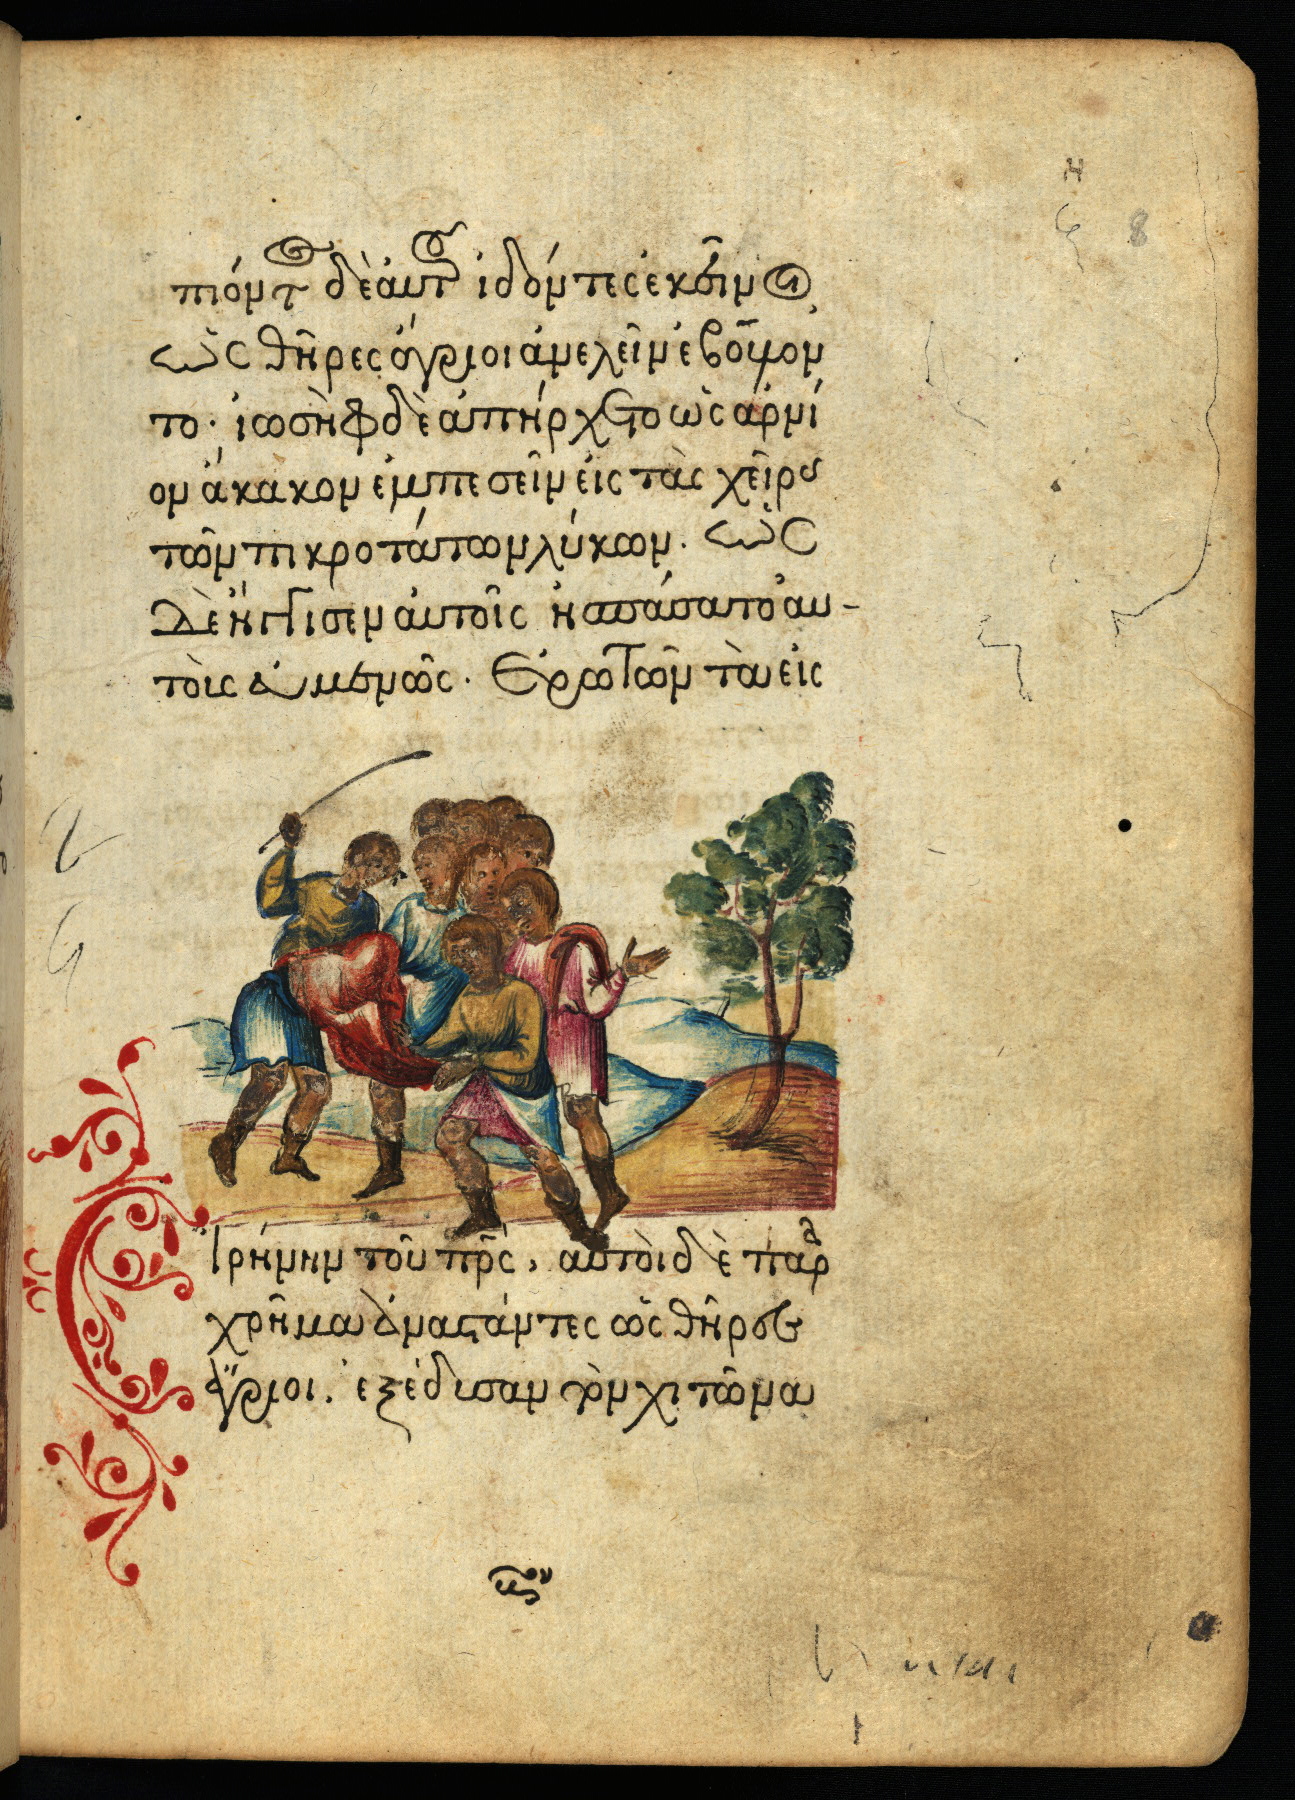 η
8
πιόντ(ων) δὲ αὐτ(ῶν) ἰδόντες ἐκεῖνοι
ὡς θῆρες ἄγριοι ἀνελεῖν ἐβούλον
το· ἰωσὴφ δὲ ἀπήρχετο ὡς ἀρνί
ον ἄκακον ἐμπεσεῖν εἰς τὰς χεῖρας
τῶν πικροτάτων λύκων. ὡς
δὲ ἤγγισεν αὐτοῖς ἠσπάσατο αὐ-
τοὺς εὐμενῶς. ἐρωτῶν τὴν εἰ
ἰρήνην τοῦ πρς, αὐτοὶ δὲ παρ
χρῆμα ἀναστάντες ὡς θῆρες
ἄγριοι. ἐξέδυσαν τὸν χιτῶνα